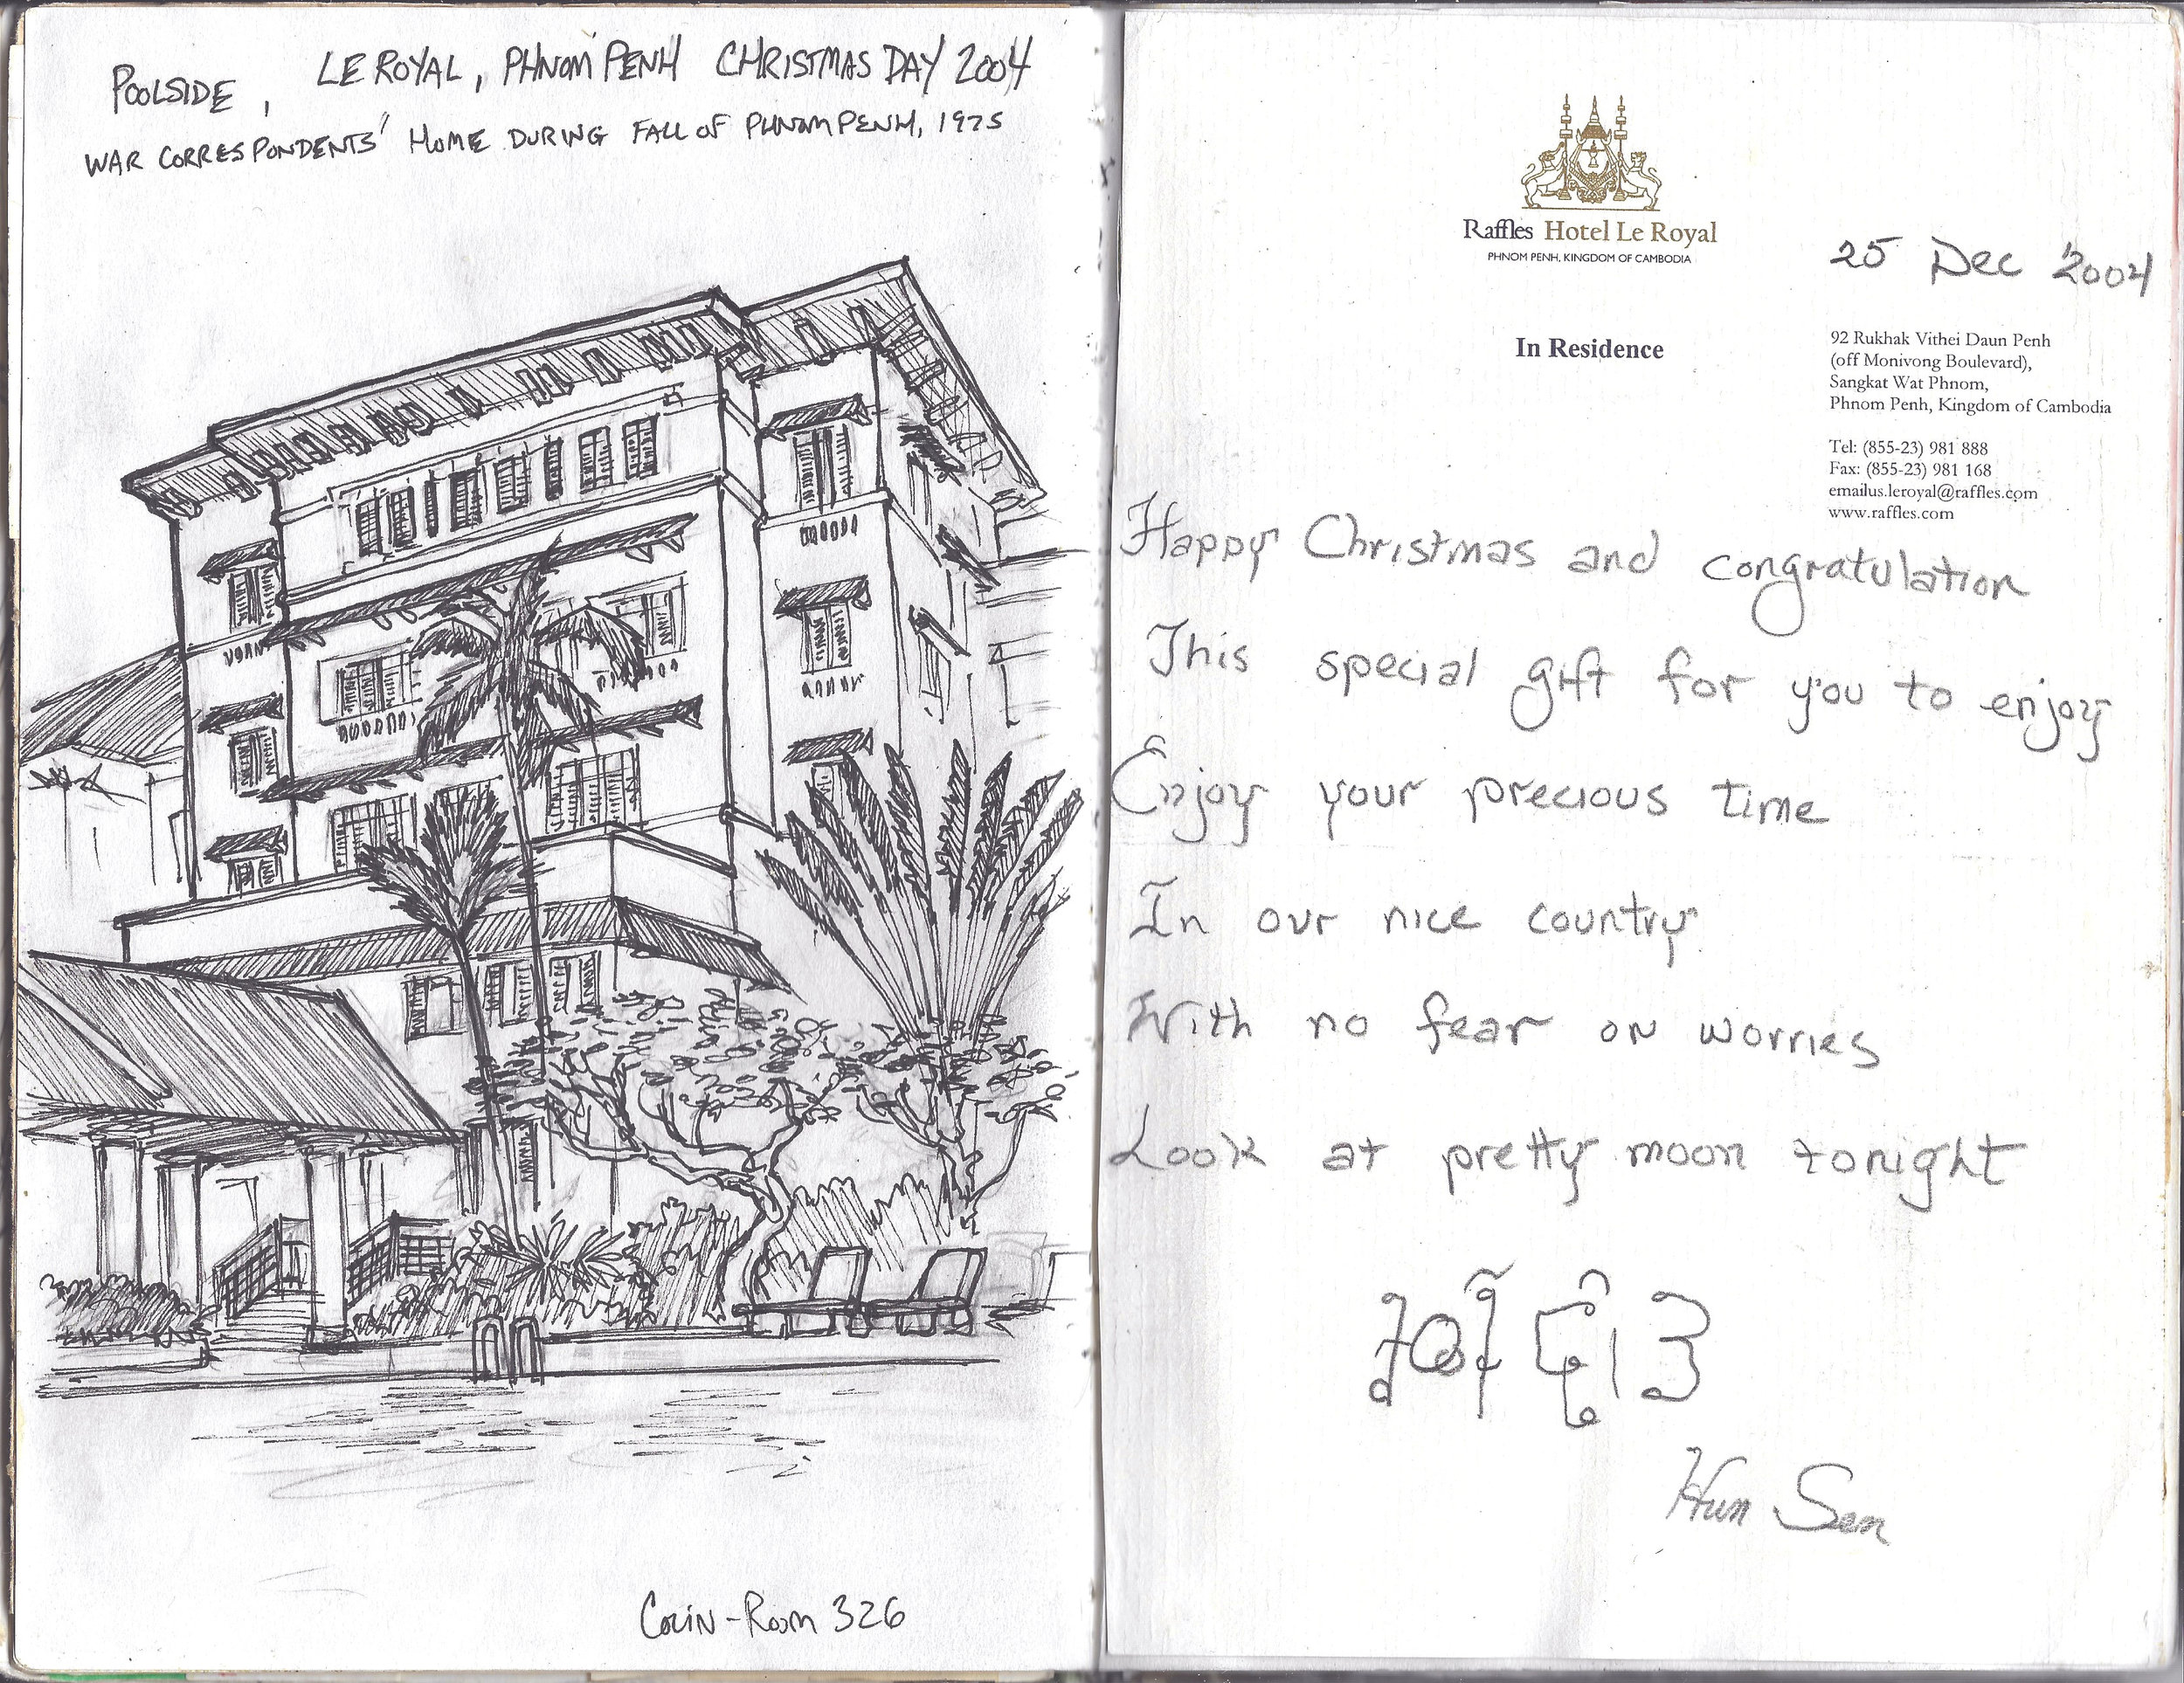 POOLSIDE, LE ROYAL, PHNOM PENH CHRISTMAS DAY 2004
WAR CORRESPONDENTS' HOME DURING FALL OF PHNOM PENH, 1975
COLIN - ROOM 326
Raffles Hotel Le Royal
PHNOM PENH, KINGDOM OF CAMBODIA
25 Dec 2004
In Residence
92 Rukhak Vithei Daun Penh
(off Monivong Boulevard),
Sangkat Wat Phnom,
Phnom Penh, Kingdom of Cambodia
Tel: (855-23) 981 888
Fax: (855-23) 981 168
emailus.leroyal@raffles.com
www.raffles.com
Happy Christmas and congratulation
This special gift for you to enjoy
Enjoy your precious time
In our nice country
With no fear on worries
Look at pretty moon tonight
Hun Sen